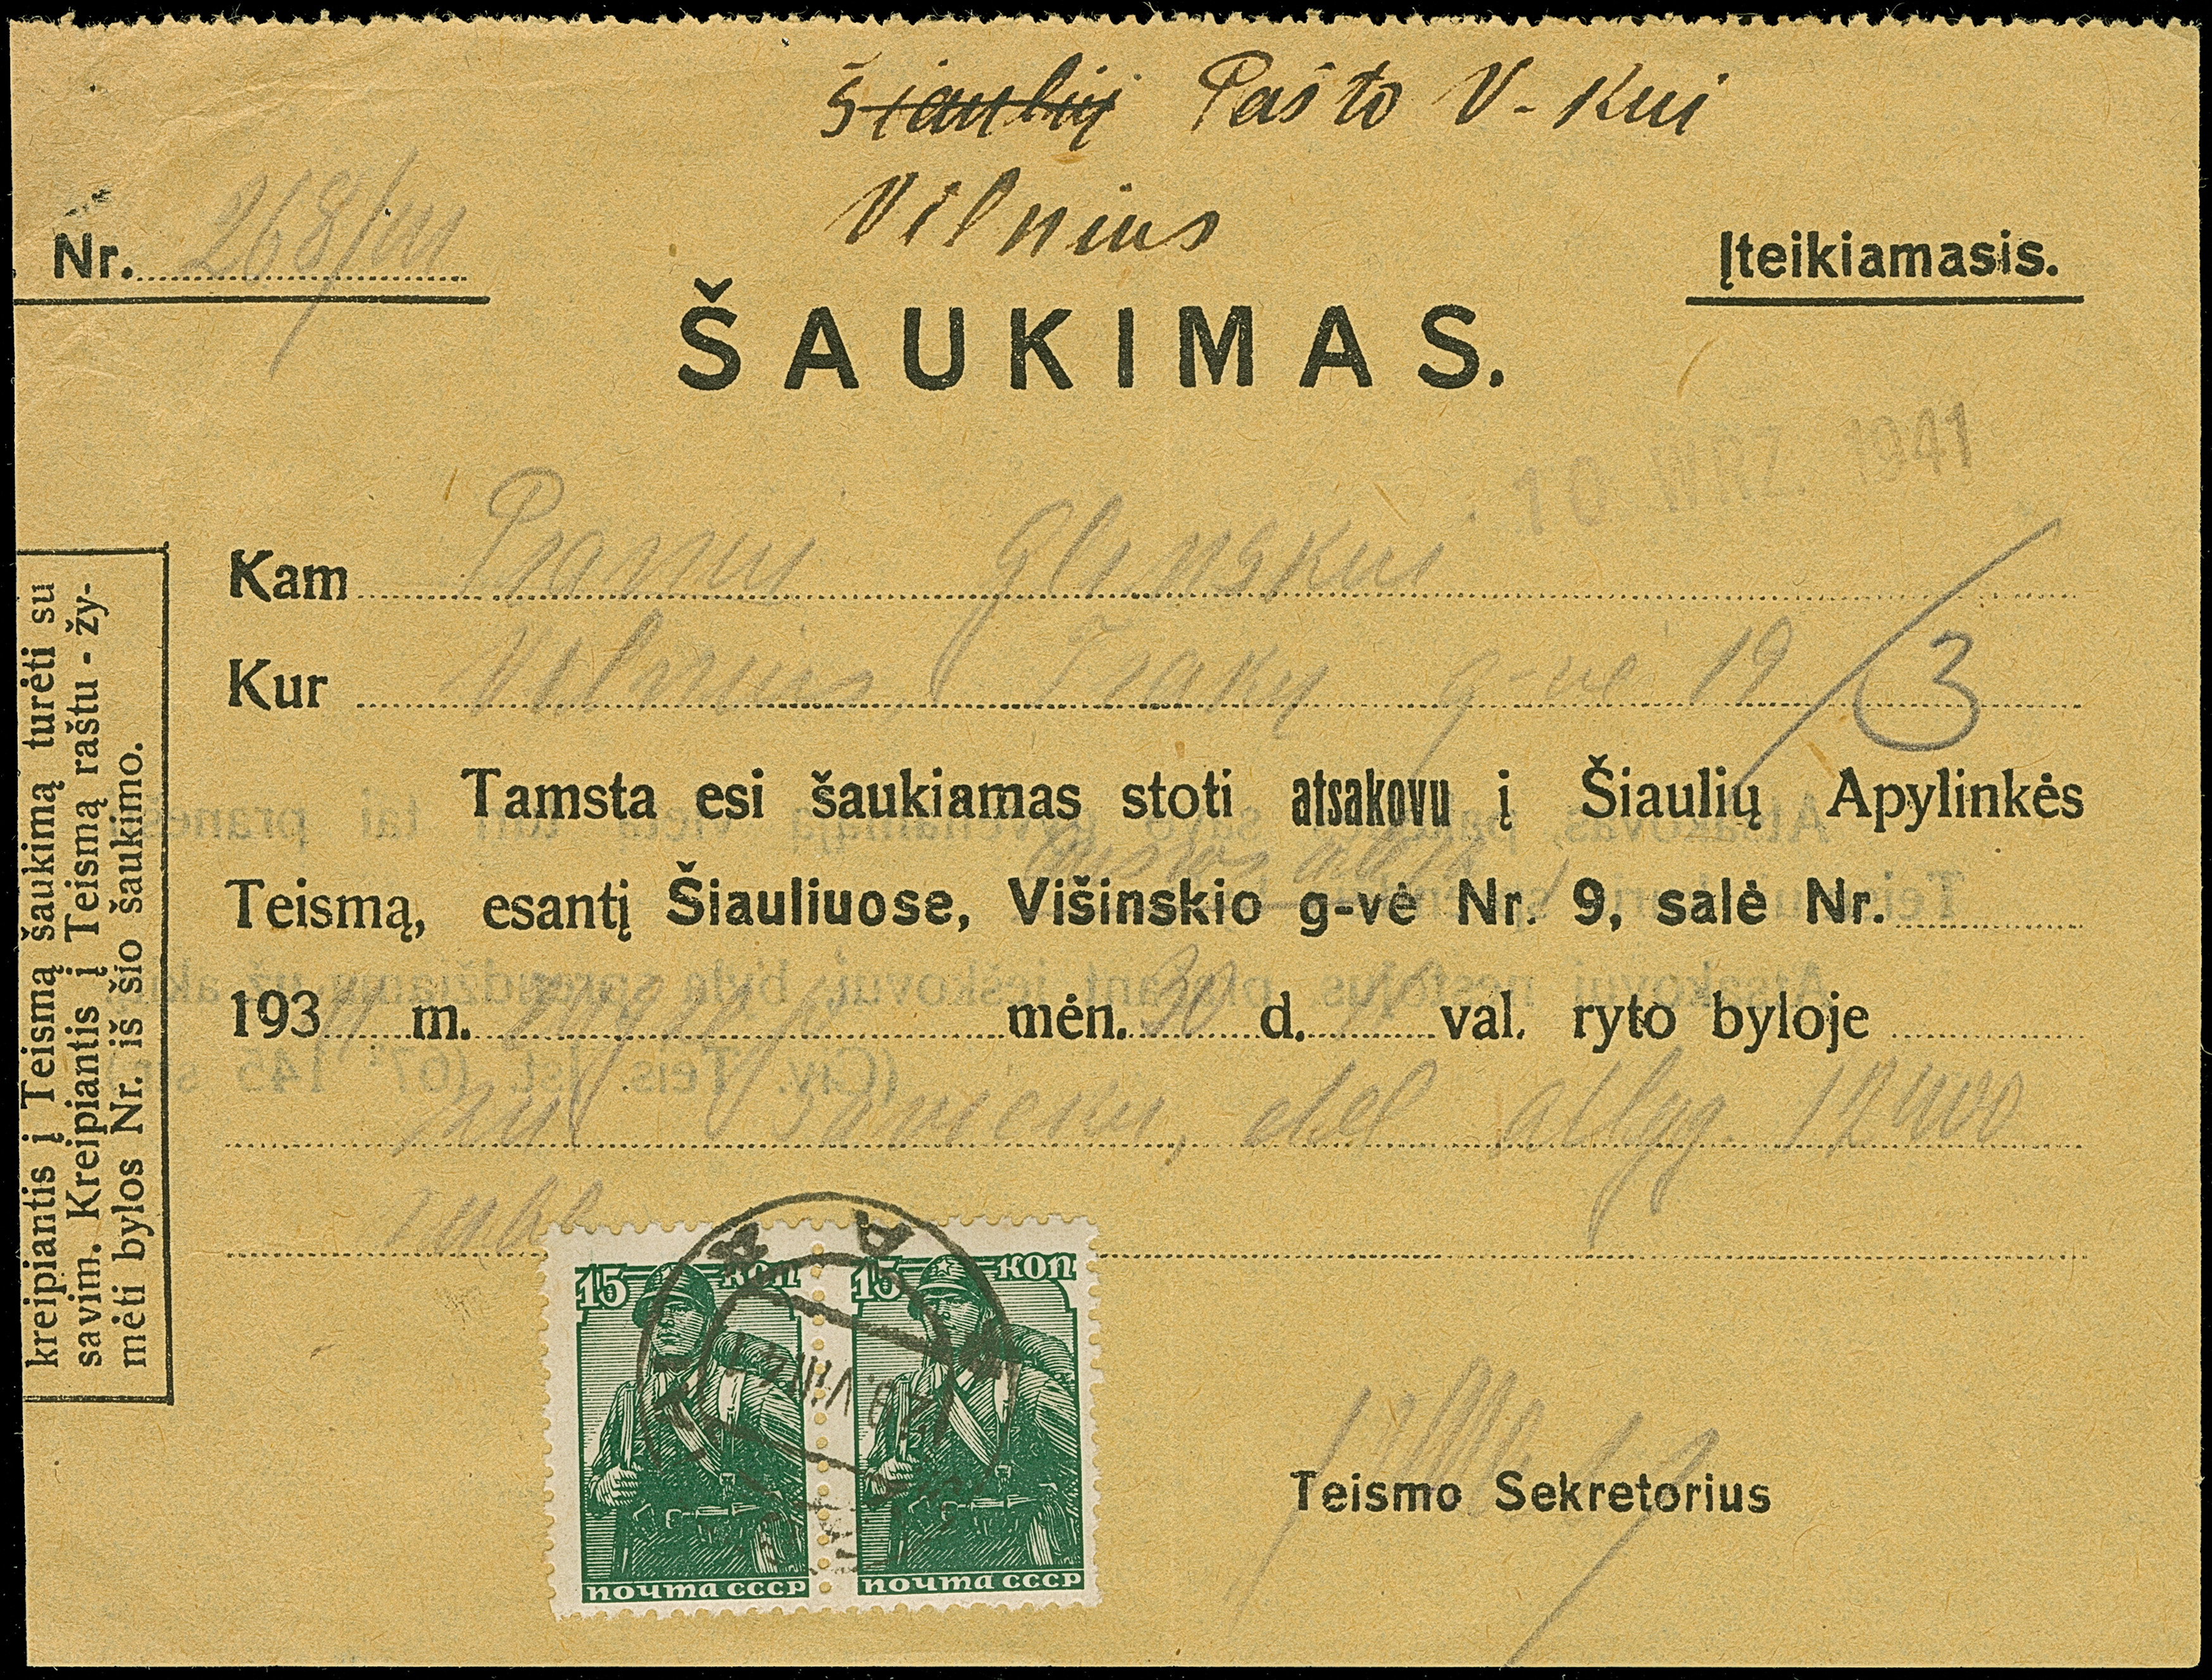 Šiaulių Pašto V-kui
Vilnius
Nr. 268/III
Įteikiamasis.
ŠAUKIMAS.
10 WRZ. 1941
Kam Pranui Glinskui
Kur Vilnius, Trakų g-vė 19/3
Tamsta esi šaukiamas stoti atsakovu į Šiaulių Apylinkės
Teismą, esantį Šiauliuose, Višinskio g-vė Nr. 9, salė Nr.
193 m. mėn. 30 d. val. ryto byloje
dėl atlyg. 12400
rubl
kreipiantis į Teismą šaukimą turėti su
savim. Kreipiantis į Teismą raštu - žy-
mėti bylos Nr. iš šio šaukimo.
15 КОП 15 КОП
ПОЧТА СССР ПОЧТА СССР
Teismo Sekretorius